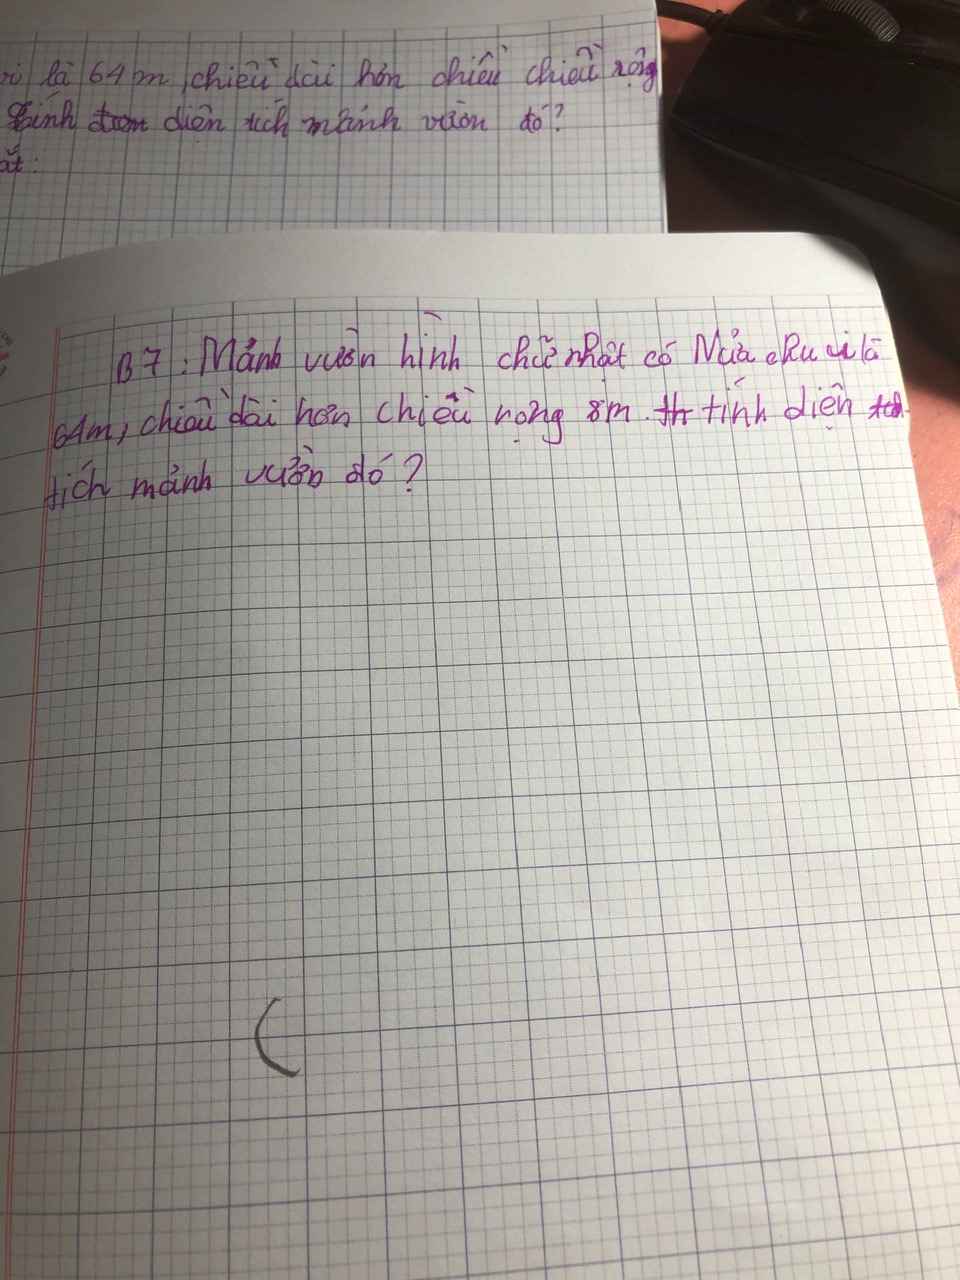 là 64m, chiều dài hơn chiều chiều rộng
tính diện tích mảnh vườn đó?
ắt:
B7: Mảnh vườn hình chữ nhật có Nửa chu vi là
64m, chiều dài hơn chiều rộng 8m. th tính diện
tích mảnh vườn đó?